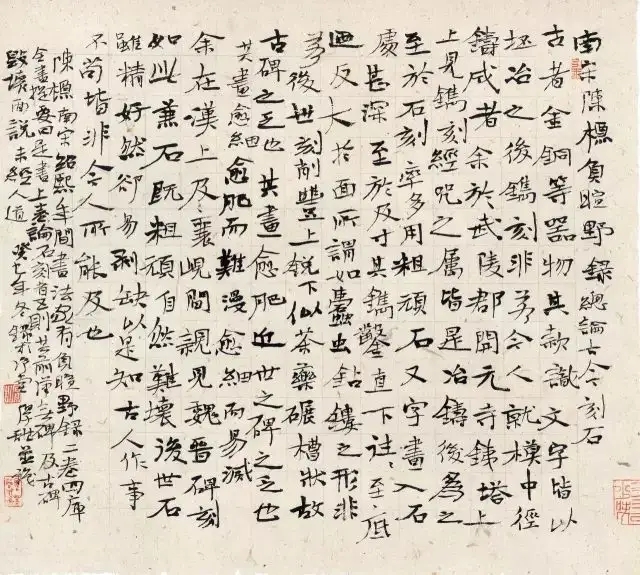 南宋陳槱負暄野錄總論古今刻石
古者金銅等器物其款識文字皆以
坯冶之後鐫刻非若今人就模中徑
鑄成者余於武陵郡開元寺鉄塔上
上見鐫刻經咒之屬皆是冶鑄後為之
至於石刻率多用粗頑石又字畫入石
處甚深至於及寸其鐫鑿直下往往至底
迺反大於面所謂如蠹虫鉆鏤之形非
若後世刻削豐上銳下似茶藥碾槽狀故
古碑之乏也其畫愈肥近世之碑之乏也
其畫愈細愈肥而難漫愈細而易滅
余在漢上及襄峴間親見魏晉碑刻
如此兼石既粗頑自然難壞後世石
雖精好然卻易剥缺以是知古人作事
不苟皆非今人所能及也
陳槱南宋紹熙年間書法家有負暄野錄二卷四庫
全書提要曰是書上卷論石刻者五則其所古碑及古碑
毀壞兩說未經人道 癸巳年冬錄於